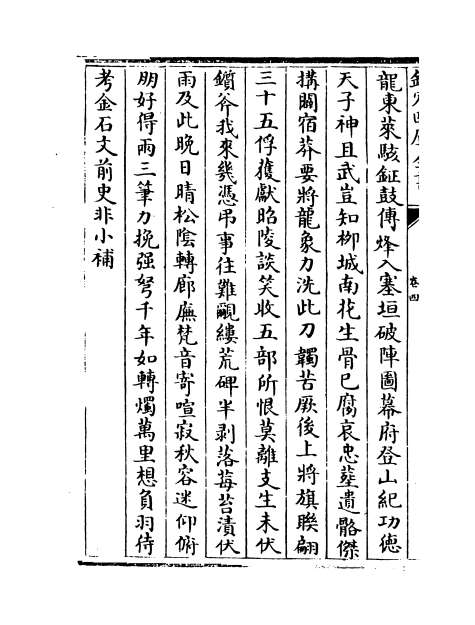 卷四
龍東萊駭鉦鼓傳烽入塞垣破陣圖幕府登山紀功德
天子神且武豈知柳城南花生骨已腐哀忠墓遺骼傑
搆闢宿莽要將龍象力洗此刀鐲苦厥後上將旗聯翩
三十五俘獲獻昭陵談笑收五部所恨莫離支生未伏
鑕斧我來幾憑弔事往難覼縷荒碑半剥落莓苔漬伏
雨及此晚日晴松陰轉廊廡梵音寄喧寂秋容迷仰俯
朋好得兩三筆力挽强弩千年如轉燭萬里想負羽待
考金石文前史非小補